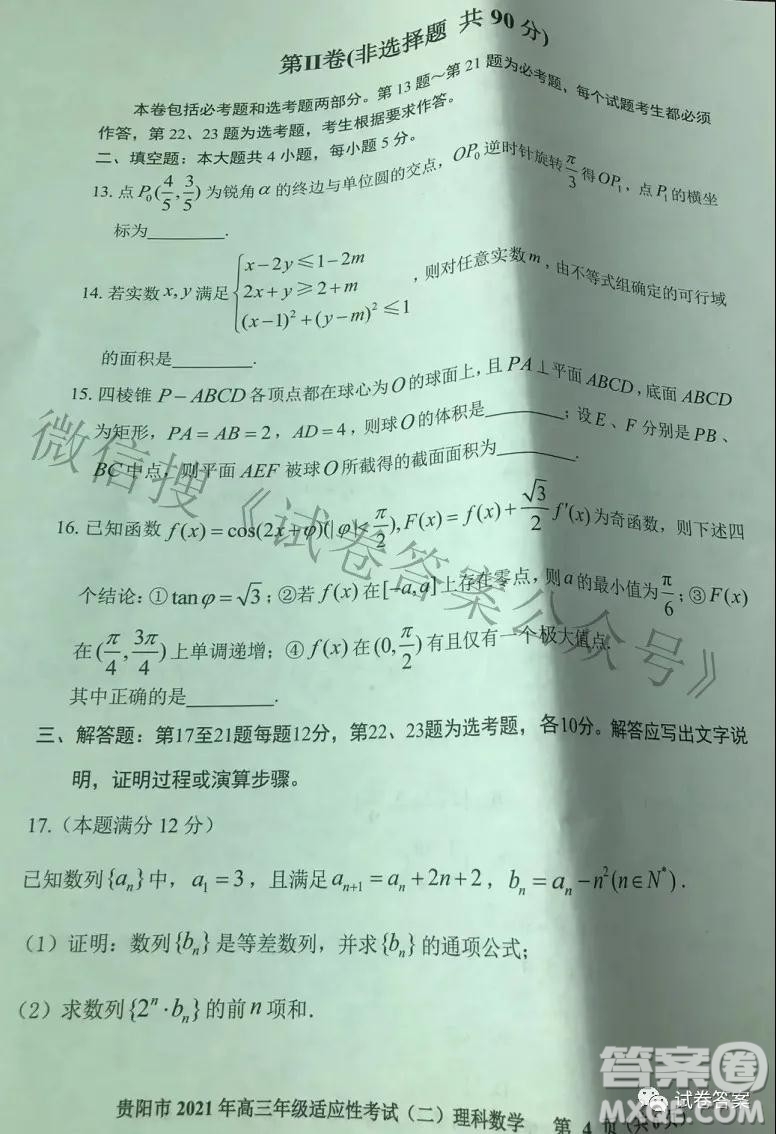 第II卷(非选择题 共 90 分)
本卷包括必考题和选考题两部分。第 13 题～第 21 题为必考题，每个试题考生都必须
作答，第 22、23 题为选考题，考生根据要求作答。
二、填空题：本大题共 4 小题，每小题 5 分。
13. 点 P₀(4/5, 3/5) 为锐角 α 的终边与单位圆的交点，OP₀ 逆时针旋转 π/3 得 OP₁，点 P₁ 的横坐
标为________.
14. 若实数 x, y 满足 { x−2y ≤ 1−2m
2x+y ≥ 2+m
(x−1)²+(y−m)² ≤ 1 ，则对任意实数 m，由不等式组确定的可行域
的面积是________.
15. 四棱锥 P−ABCD 各顶点都在球心为 O 的球面上，且 PA⊥平面 ABCD，底面 ABCD
为矩形，PA=AB=2，AD=4，则球 O 的体积是________；设 E、F 分别是 PB、
BC 中点，则平面 AEF 被球 O 所截得的截面面积为________.
16. 已知函数 f(x)=cos(2x+φ)(|φ|<π/2), F(x)=f(x)+√3/2 f′(x) 为奇函数，则下述四
个结论：①tanφ=√3；②若 f(x) 在[−a,a]上存在零点，则 a 的最小值为 π/6；③F(x)
在(π/4, 3π/4)上单调递增；④f(x) 在(0, π/2)有且仅有一个极大值点.
其中正确的是________.
三、解答题：第17至21题每题12分，第22、23题为选考题，各10分。解答应写出文字说
明，证明过程或演算步骤。
17.（本题满分 12 分）
已知数列{aₙ}中，a₁=3，且满足 aₙ₊₁=aₙ+2n+2，bₙ=aₙ−n²(n∈N*).
（1）证明：数列{bₙ}是等差数列，并求{bₙ}的通项公式；
（2）求数列{2ⁿ·bₙ}的前 n 项和.
贵阳市 2021 年高三年级适应性考试（二）理科数学 第 4 页
微信搜《试卷答案公众号》
答案圈
试卷答案
MXQE.COM